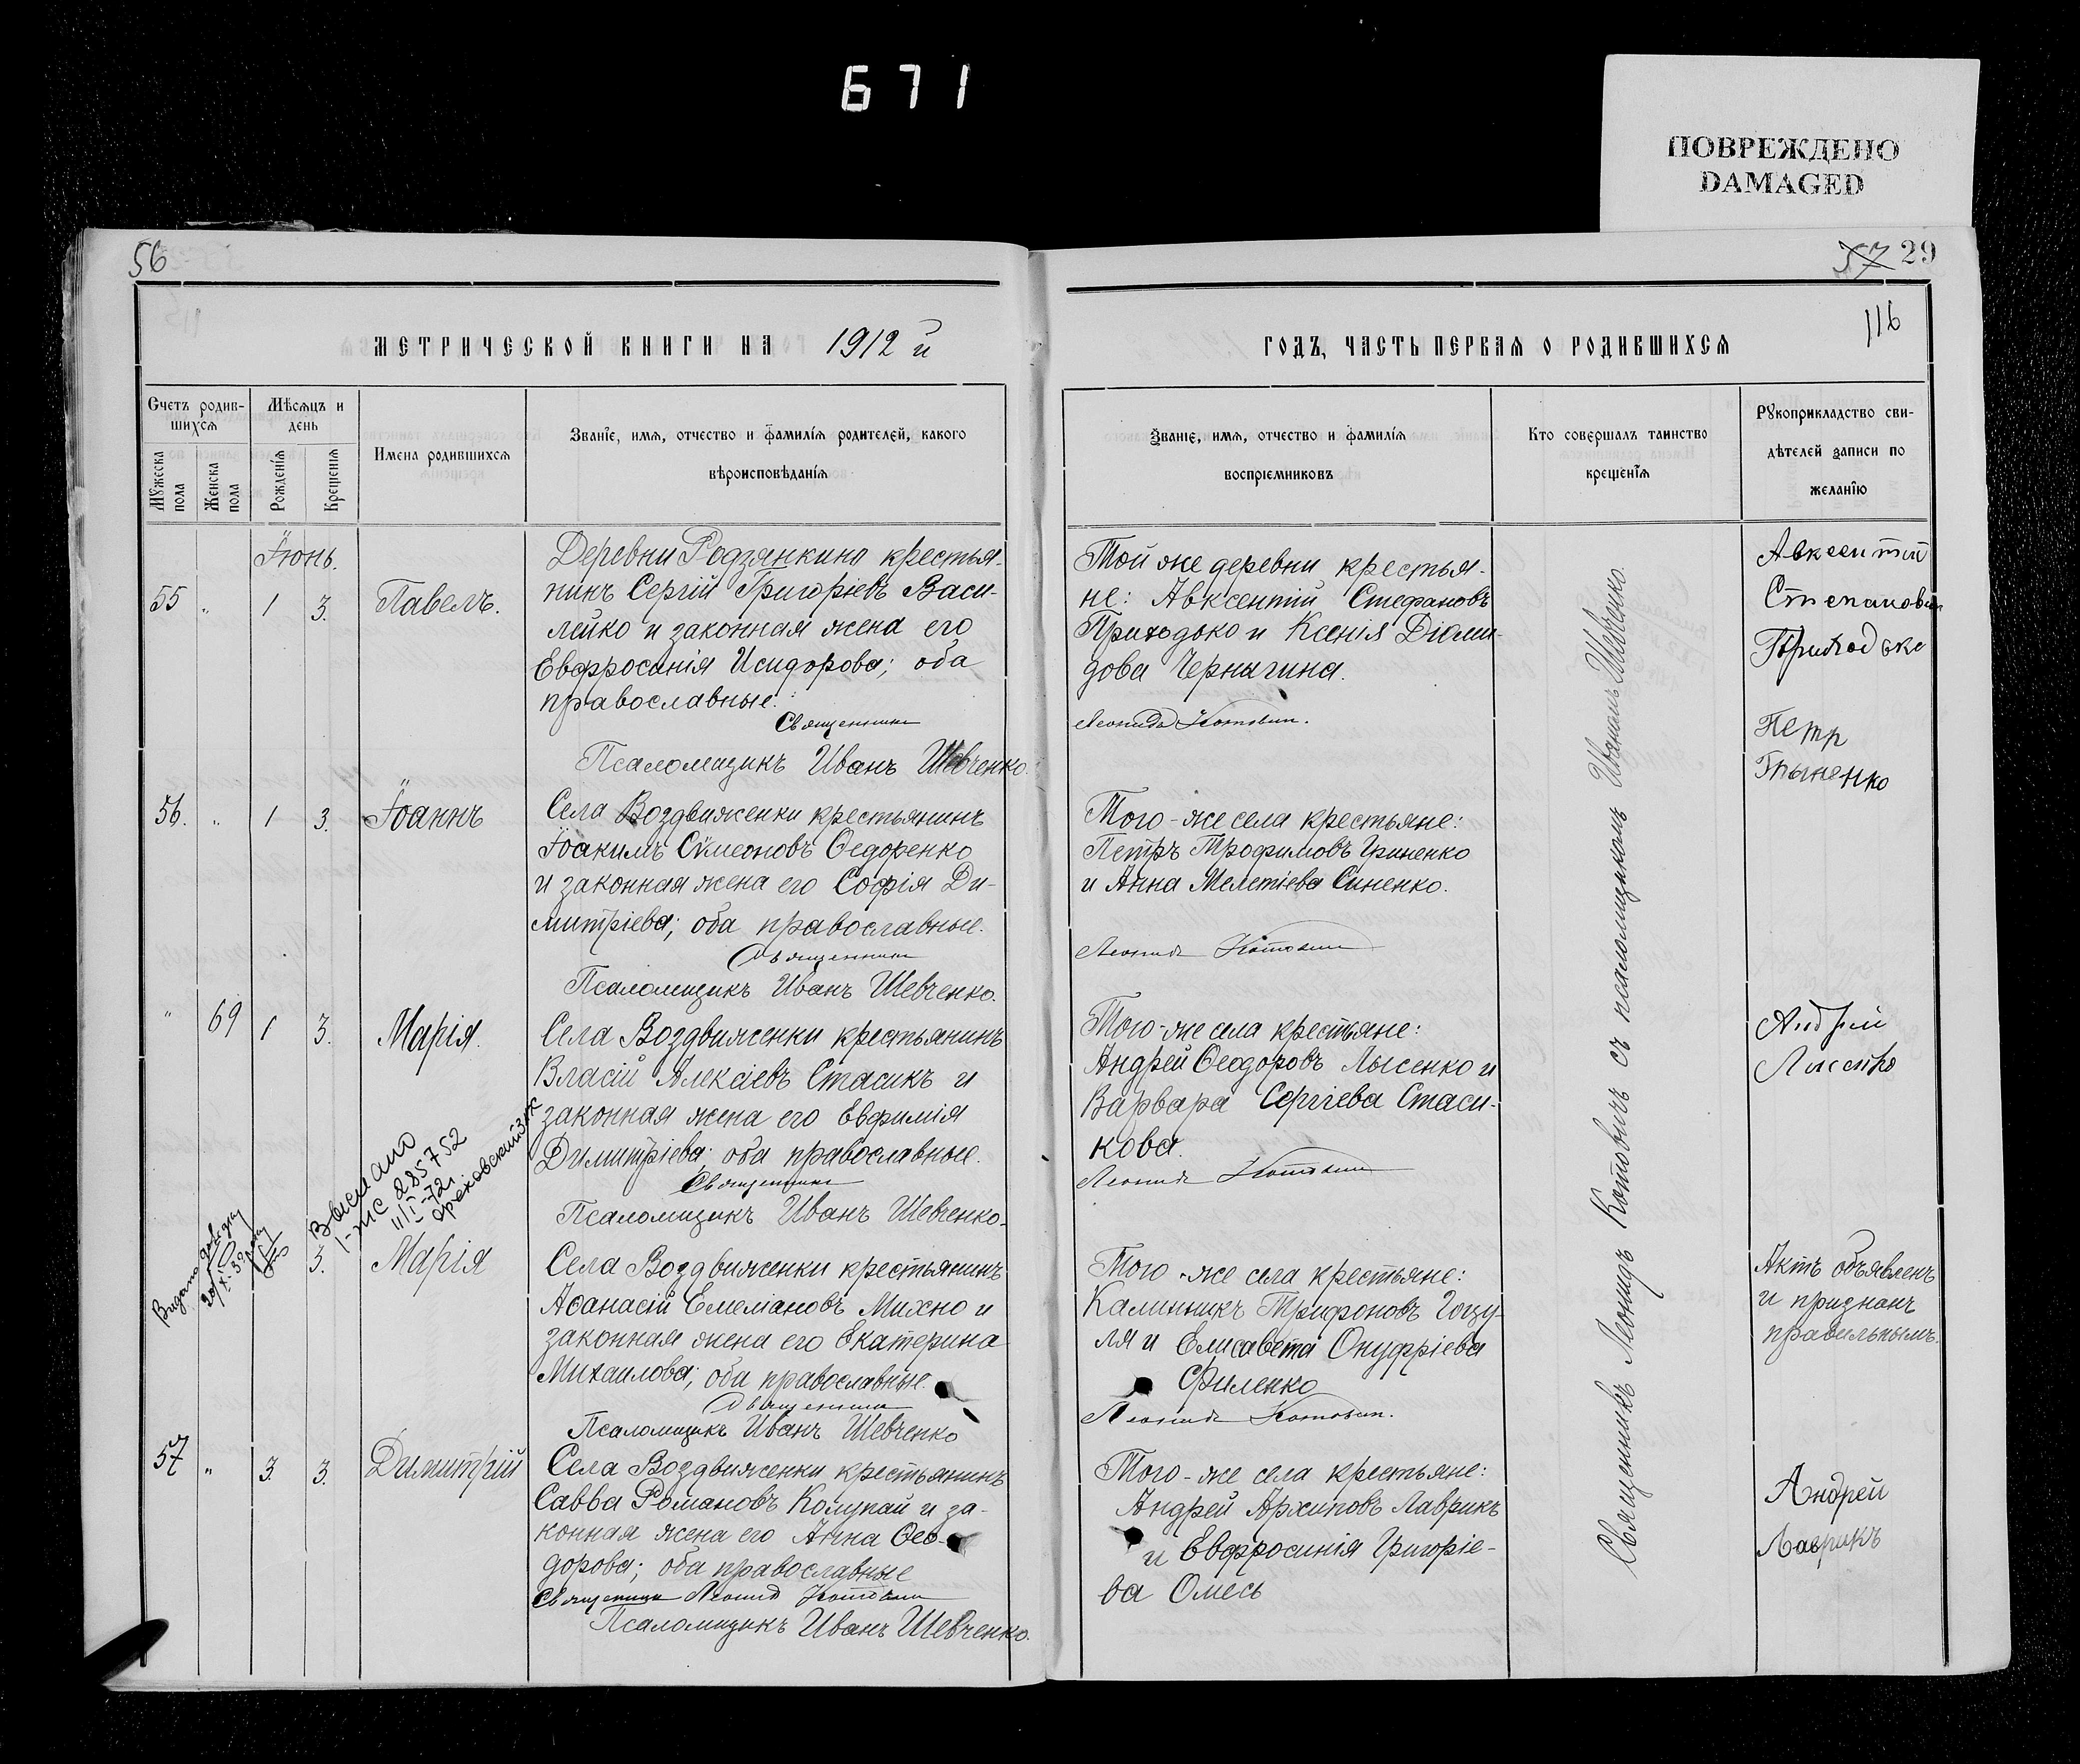 671
ПОВРЕЖДЕНО
DAMAGED
56
57 29
116
МЕТРИЧЕСКОЙ КНИГИ НА 1912 й
ГОДЪ, ЧАСТЬ ПЕРВАЯ О РОДИВШИХСЯ
Счетъ родив-
шихся
Мѣсяцъ и
день
Мужеска
пола
Женска
пола
Рожденія
Крещенія
Имена родившихся
Званіе, имя, отчество и фамилія родителей, какого
вѣроисповѣданія
Званіе, имя, отчество и фамилія
воспріемниковъ
Кто совершалъ таинство
крещенія
Рукоприкладство сви-
дѣтелей записи по
желанію
Іюнь.
55 " 1 3. Павелъ.
Деревни Родзянкино крестья-
нинъ Сергій Григоріевъ Васи-
лейко и законная жена его
Евфросинія Исидорова; оба
православные.
Священникъ
Псаломщикъ Иванъ Шевченко.
Той же деревни крестья-
не: Авксентій Стефановъ
Приходько и Ксенія Діоми-
дова Чернигина.
Леонидъ Котович.
Авксентий
Степанович
Приходько
56. " 1 3. Іоаннъ
Села Воздвиженки крестьянинъ
Іоакимъ Сѵмеоновъ Ѳедоренко
и законная жена его Софія Ди-
митріева; оба православные.
Священникъ
Псаломщикъ Иванъ Шевченко.
Того-же села крестьяне:
Петръ Трофимовъ Гриненко
и Анна Мелетіева Синенко.
Леонидъ Котович
Петр
" 69 1 3. Марія.
Села Воздвиженки крестьянинъ
Власій Алексіевъ Стасикъ и
законная жена его Евфимія
Димитріева; оба православные.
Священникъ
Псаломщикъ Иванъ Шевченко.
Того-же села крестьяне:
Андрей Ѳеодоровъ Лысенко и
Варвара Сергіева Стаси-
кова.
Леонидъ Котович
Андрей
Лисенко
Выслано
1-ЖС 285752
11/I-72г.
Ореховский ЗАГС
Видано довідку
3. Марія
Села Воздвиженки крестьянинъ
Аѳанасій Емеліановъ Михно и
законная жена его Екатерина
Михаилова; оба православные.
Священникъ
Псаломщикъ Иванъ Шевченко
Того-же села крестьяне:
Калинникъ Трифоновъ Гоцу-
ля и Елисавета Онуфріева
Филенко
Леонидъ Котович.
Актъ объявленъ
и признанъ
правильнымъ.
57 " 3. 3. Димитрій
Села Воздвиженки крестьянинъ
Савва Романовъ Колупай и за-
конная жена его Анна Ѳео-
дорова; оба православные
Священникъ Леонид Котович
Псаломщикъ Иванъ Шевченко.
Того-же села крестьяне:
Андрей Архиповъ Лаврикъ
и Евфросинія Григоріе-
ва Омесь
Андрей
Лаврикъ
Священникъ Леонидъ Котовичъ съ псаломщикомъ Иваномъ Шевченко.